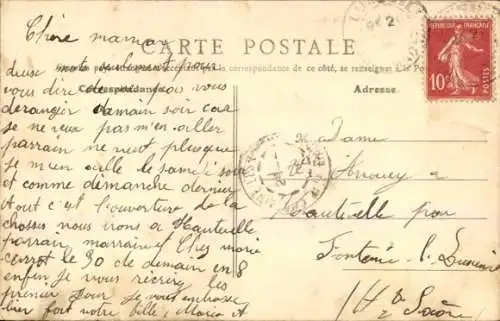 Chère maman
CARTE POSTALE
REPUBLIQUE FRANÇAISE
10c
POSTES
deuse mots seulement pour
la correspondance de ce côté, se renseigner à la Poste
vous dire de ne pas vous
Correspondance
Adresse
deranger demain soir car
je ne veux pas m'en aller
parrain ne veut plusque
je m'en aille le samedi soir
et comme dimanche dernier
Aout c'est l'ouverture de la
chasses nous irons a Hauteville
parrain, marraine et Chez marie
le 30 de demain en 8
enfin je vous récrirez les
premier jour je vous embrasse
bien fort votre fille, Maria
Madame
a
Hauteville par
Fontaine-l. Luxeuil
Hte Saône